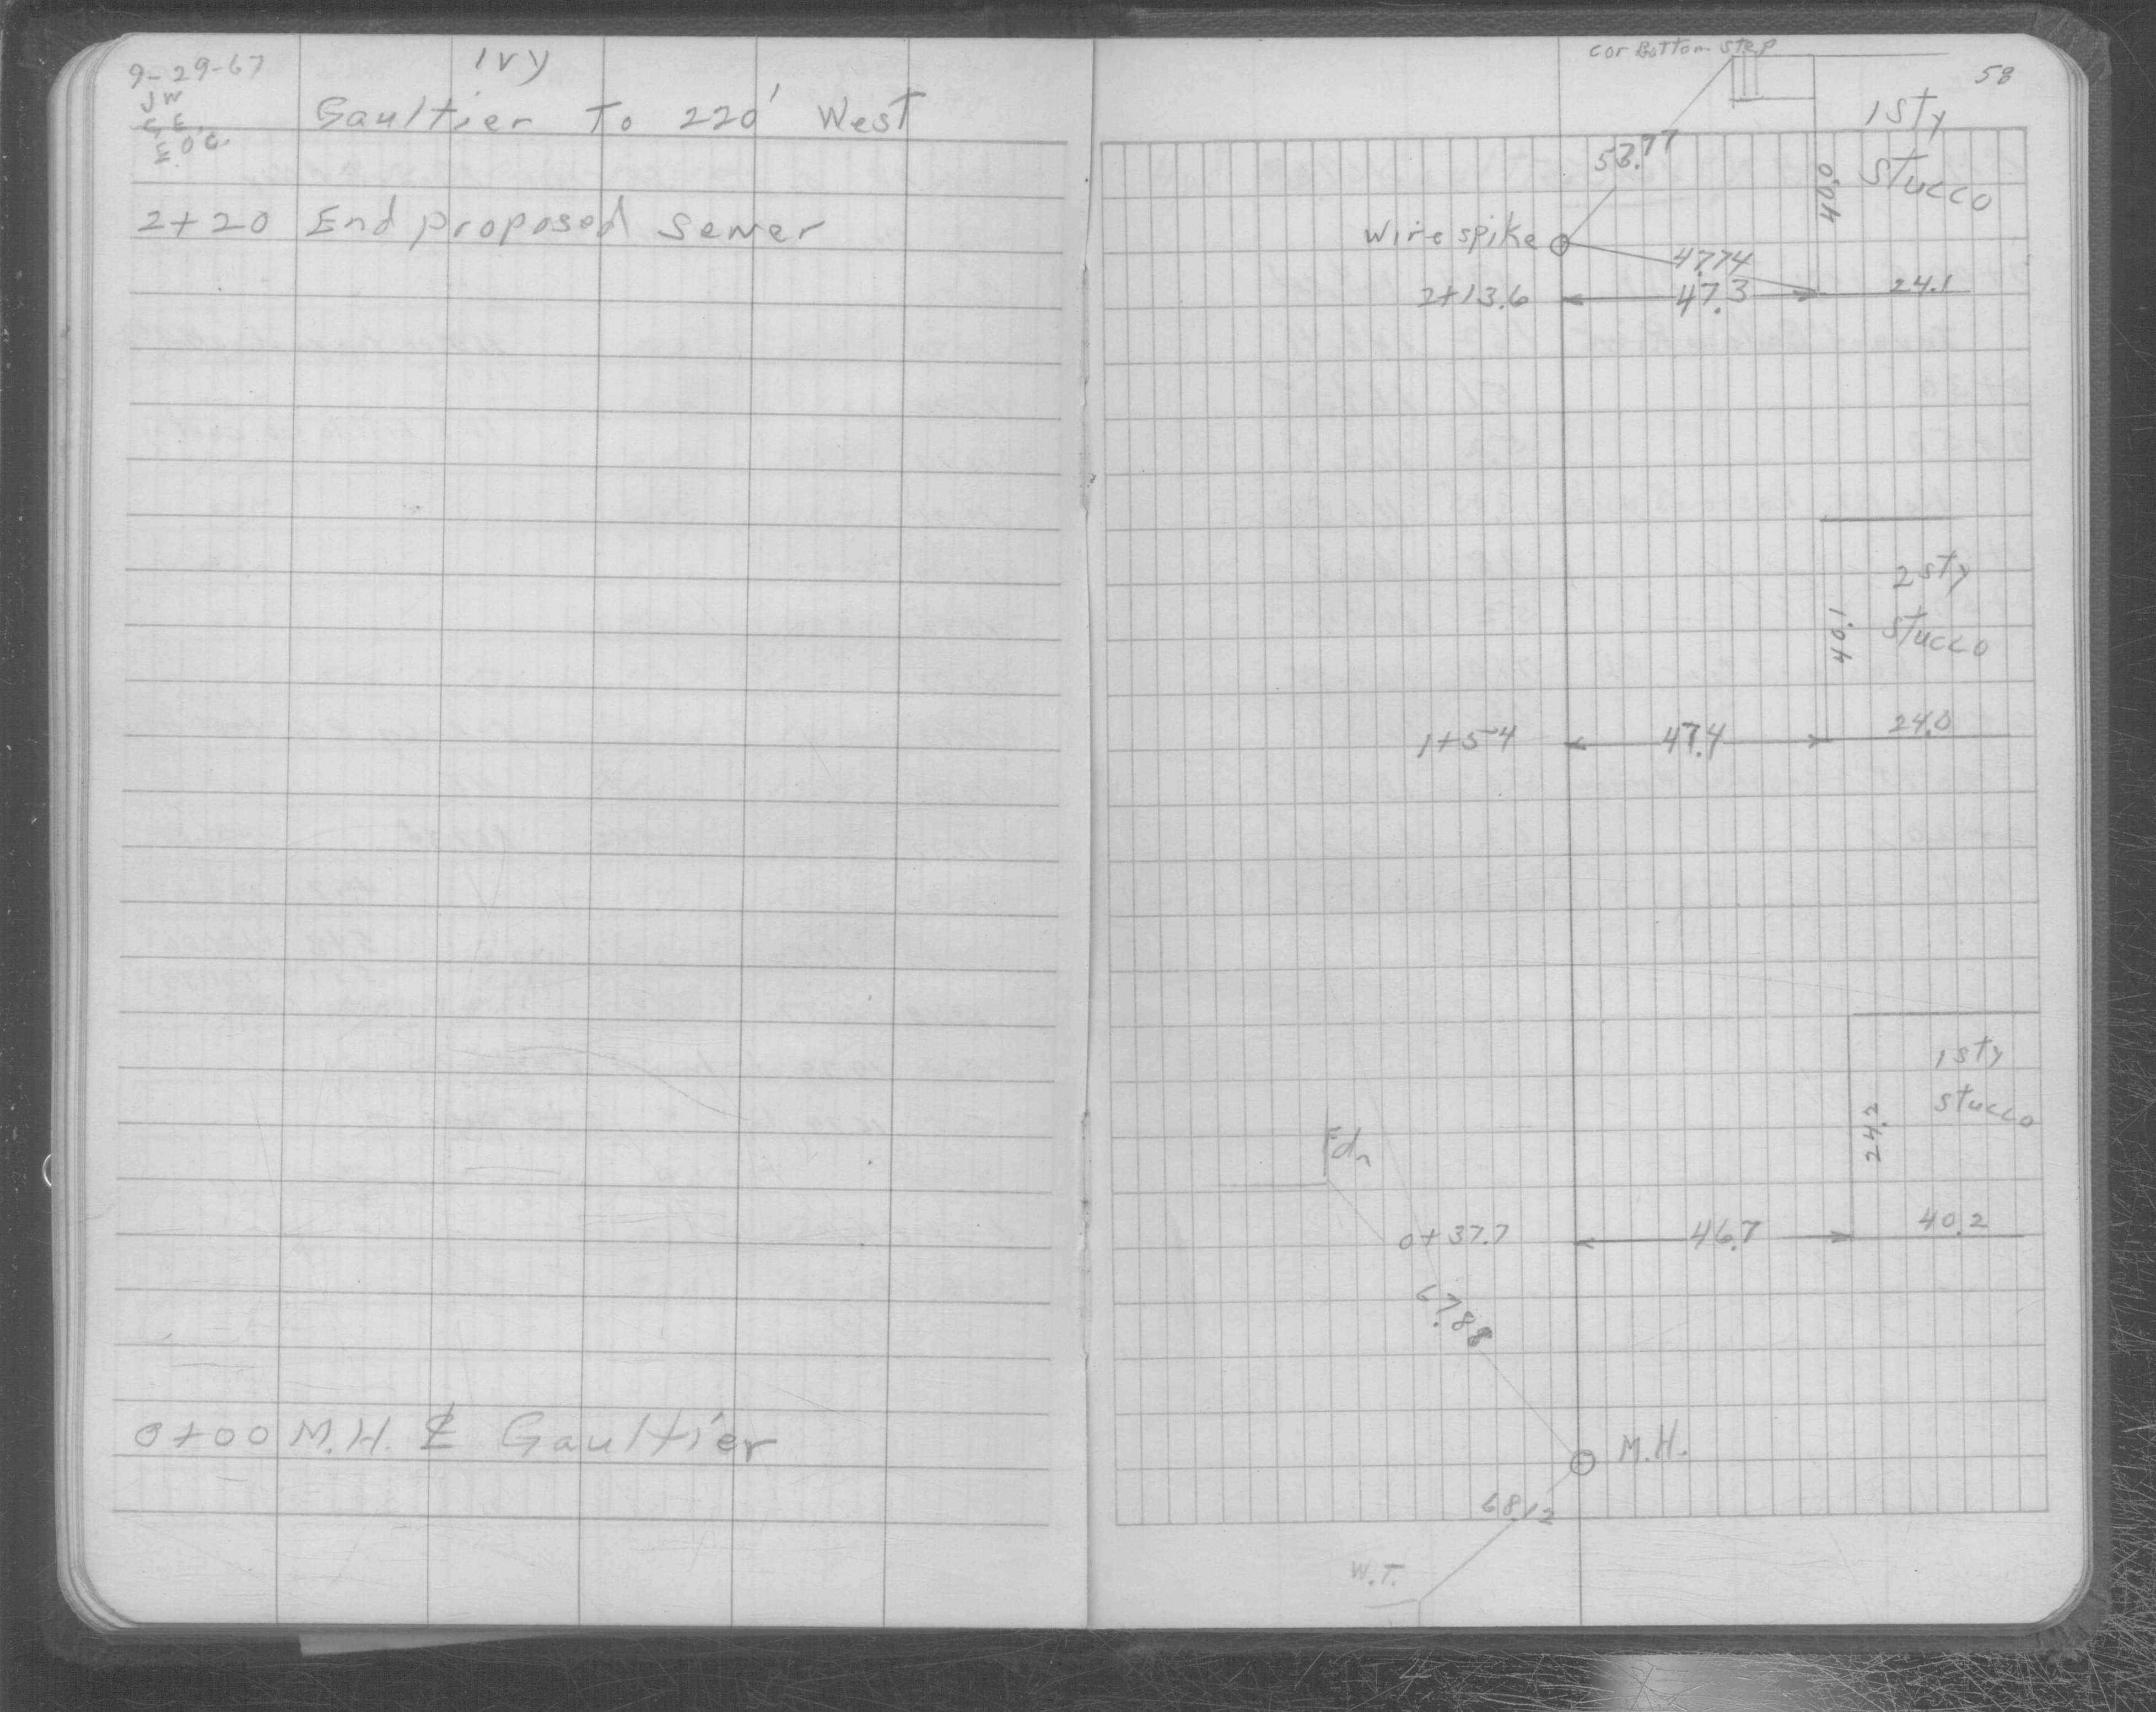 9-29-67
JW
C.E.
E.O'C.
Ivy
Gaultier To 220' West
2+20 End proposed Sewer
0+00 M.H. ℄ Gaultier
58
Cor Bottom Step
1 Sty
Stucco
53.77
40.0
Wire spike
47.74
2+13.6
47.3
24.1
2 sty
Stucco
40.1
1+54
47.4
24.0
1 sty
Stucco
24.2
Fdn
0+37.7
46.7
40.2
67.88
M.H.
68.12
W.T.